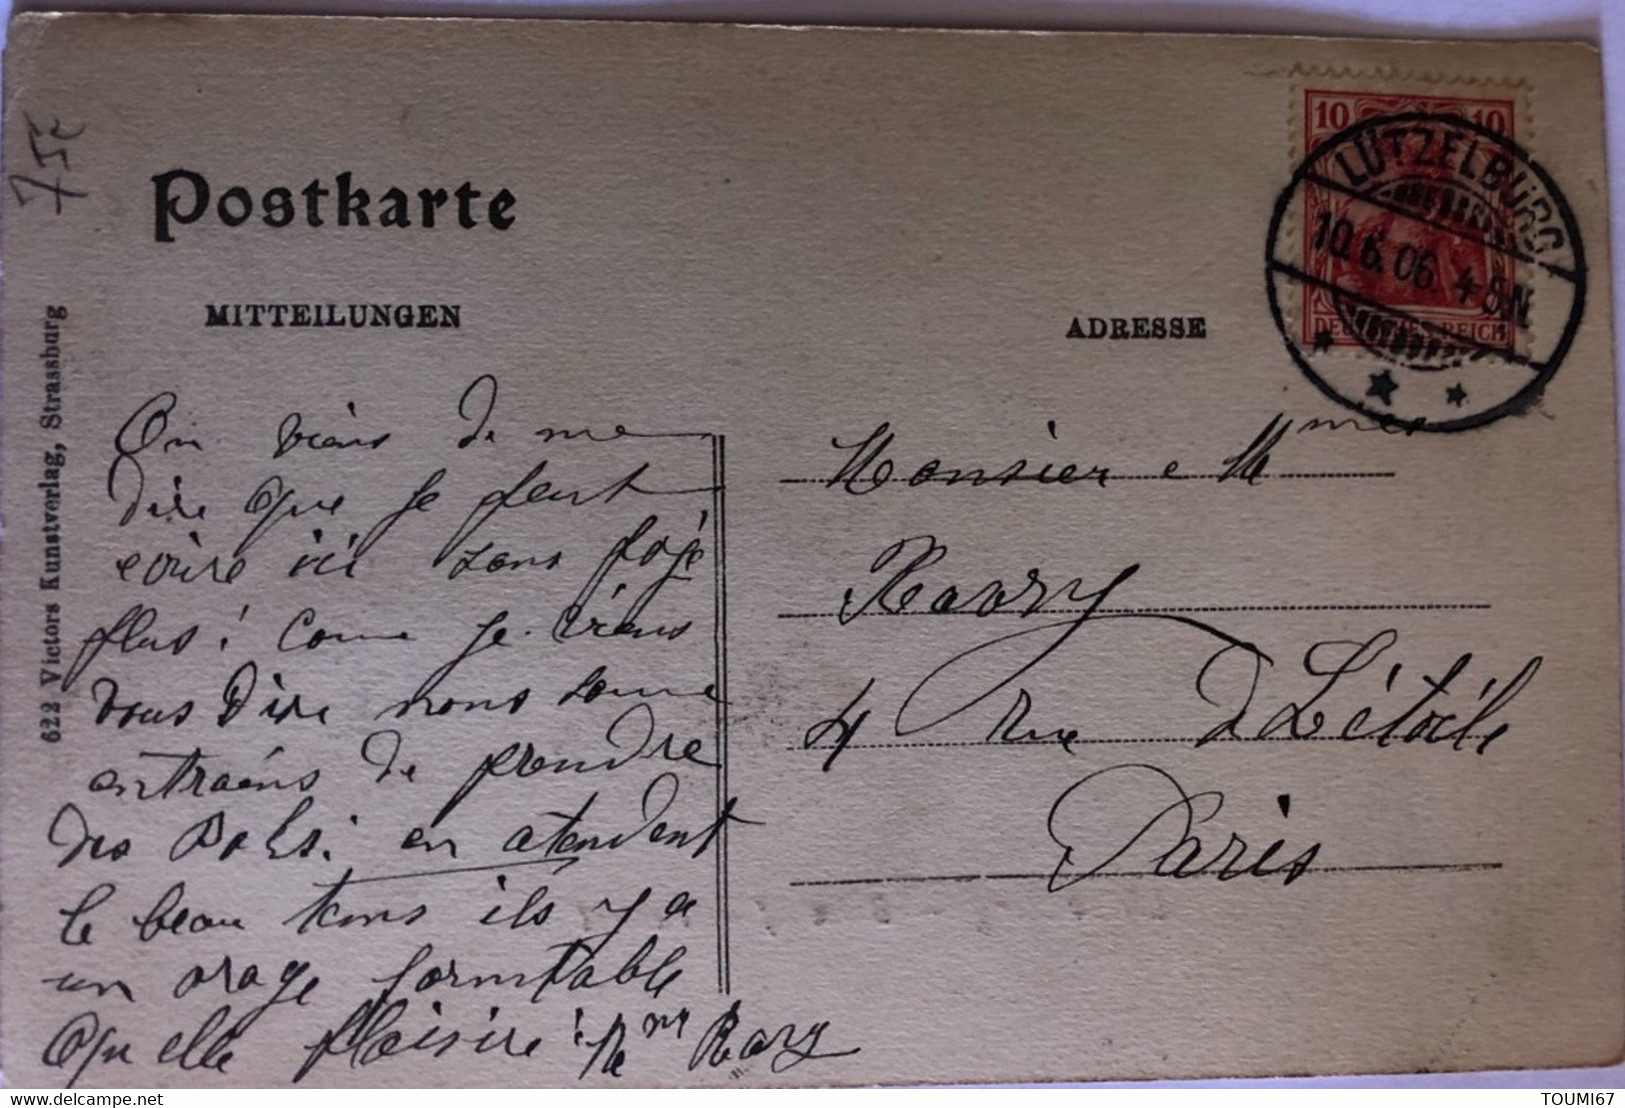 75c
Postkarte
MITTEILUNGEN
ADRESSE
622 Victors Kunstverlag, Strassburg
10 10
DEUTSCHES REICH
LÜTZELBURG
10.6.06. 4-5N.
On viens de me
dire que je peut
ecrire ici sans
plus! Come je viens
vous dire nous some
entrains de prendre
des en atendent
le beau tems ils y a
un orage formitable
Quelle plaisire! Mme Roory
Monsier e Mmes
Roory
4 rue d L'étoile
Paris
www.delcampe.net
TOUMI67